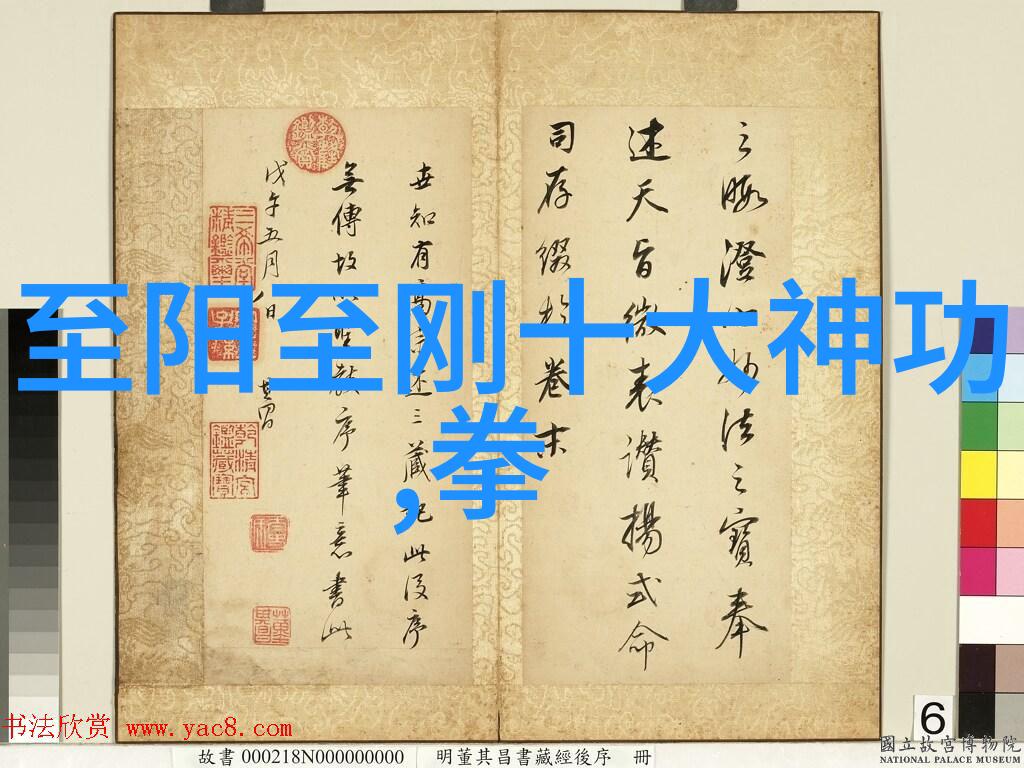 至阳至刚十大神功
,拳
之晦澄心妙法之寶奉
述天旨微表讚揚式命
司存綴於卷末
世知有高宗述三藏記此後序
無傳故以聖教序筆意書此
戊午五月八日
其昌
三希堂精鑑璽
乾清宮鑑藏寶
6
書法欣赏 www.yac8.com
故書 000218N000000000 明董其昌書藏經後序 冊
國立故宮博物院
NATIONAL PALACE MUSEUM